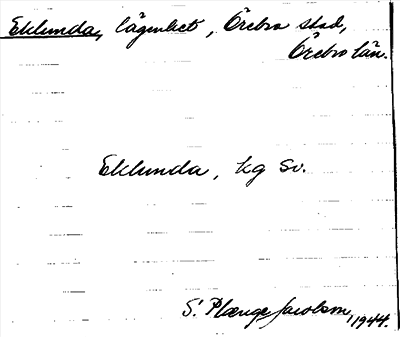 Eklunda, lägenhet, Örebro stad,
Örebro län.
Eklunda, kg Sv.
S. Plænge Jacobson, 1944.